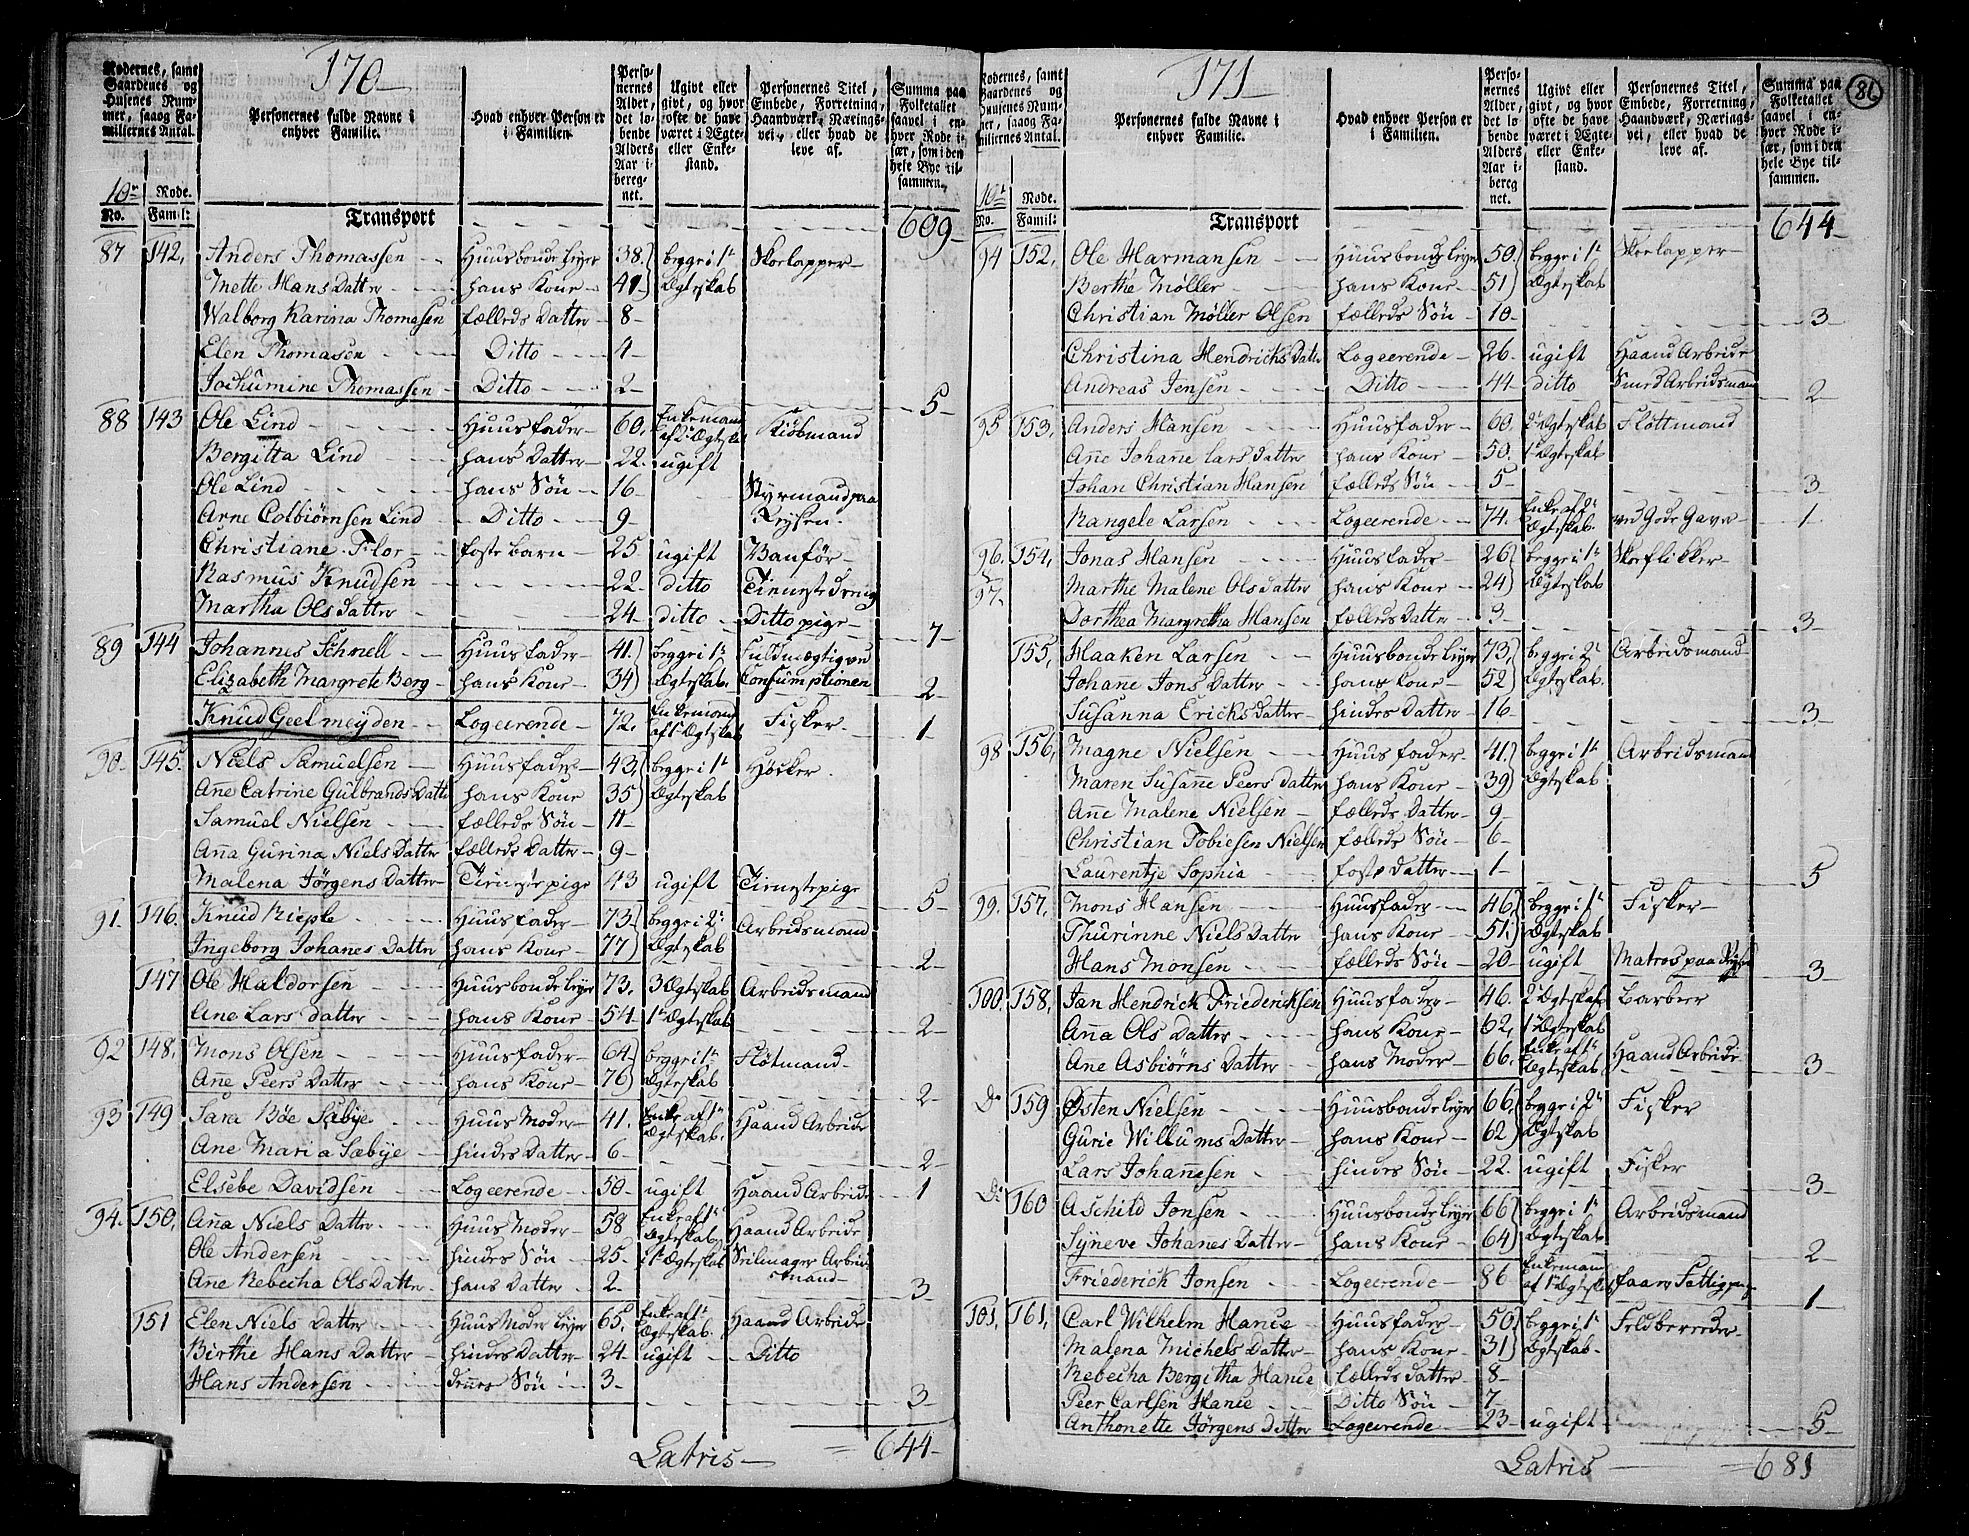 170
Rodernes, samt Gaardenes og Husenes Nummer, saaog Familiernes Antal.
Personernes fulde Navne i enhver Familie.
Hvad enhver Person er i Familien.
Personernes Alder, det løbende Alders Aar iberegnet.
Ugivt eller givt, og hvor ofte de have været i Ægte- eller Enkestand.
Personernes Titel, Embede, Forretning, Haandværk, Næringsvei, eller hvad de leve af.
Summa paa Folketallet saavel i enhver Rode især, som i den hele Bye tilsammen.
10de Rode.
No. Famil:
Transport 609
87 142. Anders Thomassen Huusbonde Leyer 38 begge i 1te Skoelapper
Mette Hans Datter hans Kone 41 Ægteskab
Walborg Karina Thomasen fælleds Datter 8
Elen Thomasen Ditto 4
Jochumine Thomassen Ditto 2
5
88 143 Ole Lind Huusfader 60 Enkemand af 2 Ægteskab Kiöbmand
Bergitta Lind hans Datter 22 ugift
Ole Lind hans Sön 16 Styrmand paa
Arne Colbiörnsen Lind Ditto 9 Reysen
Christiane Flor foste barn 25 ugift Vanför
Rasmus Knudsen 22 ditto Tienestedreng
Martha Olsdatter 24 ditto Ditto pige
7
89 144 Johannes Schnell Huusfader 41 begge i 1te Fuldmægtig ved
Elizabeth Margrete Berg hans Kone 34 Ægteskab Consumptionen
2
Knud Geelmeyden Logeerende 72 Enkemand af 1te Ægteskab Fisker
1
90 145. Niels Samuelsen Huusfader 43 begge i 1te Høcker
Ane Catrine Gulbrands Datter hans Kone 35 Ægteskab
Samuel Nielsen fælleds Sön 11
Ana Gurina Niels Datter fælleds Datter 9
Malena Jörgens Datter Tieneste pige 43 ugift Tienestepige
5
91. 146. Knud Riepke Huusfader 73 begge i 2det Arbeidsmand
Ingeborg Johanes Datter hans Kone 77 Ægteskab
2
147 Ole Haldorsen Huusbonde Leyer 73 3 Ægteskab Arbeidsmand
Ane Lars datter hans Kone 54 1te Ægteskab
2
92 148. Mons Olsen Huusfader 64 begge i 1te Flötmand
Ane Peers Datter hans Kone 76 Ægteskab
2
93 149 Sara Böe Sæbye Huus Moder 41 Enke af 1te Ægteskab Haand Arbeide
Ane Maria Sæbye hindes Datter 6
2
Elsebe Davidsen Logeerende 50 ugift Haand Arbeide
1
94. 150. Ana Niels Datter Huus Moder 58 Enke af 1te Ægteskab Haand Arbeide
Ole Andersen hindes Sön 25 i 1te Ægteskab Seilmager Arbeidsmand
Ane Rebecha Ols Datter hans Datter 2
3
151 Elen Niels Datter Huus Moder Leyer 65 Enke af 1te Ægteskab Haand Arbeide
Birthe Hans Datter hindes Datter 24 ugift Ditto
Hans Andersen Sön 3
3
Latris 644
171
81
Rodernes, samt Gaardenes og Husenes Nummer, saaog Familiernes Antal.
Personernes fulde Navne i enhver Familie.
Hvad enhver Person er i Familien.
Personernes Alder, det løbende Alders Aar iberegnet.
Ugivt eller givt, og hvor ofte de have været i Ægte- eller Enkestand.
Personernes Titel, Embede, Forretning, Haandværk, Næringsvei, eller hvad de leve af.
Summa paa Folketallet saavel i enhver Rode især, som i den hele Bye tilsammen.
10de Rode.
No. Famil:
Transport 644
94 152. Ole Harmansen Huusbonde Leyer 50 begge i 1te Skoelapper
Berthe Møller hans Kone 51 Ægteskab
Christian Møller Olsen fælleds Sön 10
3
Christina Hendrichs Datter Logeerende 26 ugift Haand Arbeide
Andreas Jensen Ditto 44 ditto Smed Arbeidsmand
2
95 153. Anders Hansen Huusfader 60 2 Ægteskab Flöttmand
Ane Johane Lars datter hans Kone 50 1te Ægteskab
Johan Christian Hansen fælleds Sön 5
3
Rangele Larsen Logeerende 74 Enke af 2 Ægteskab ved Gode Gaver
1
96. 154. Jonas Hansen Huusfader 26 begge i 1te Skoeflikker
97. Marthe Malene Olsdatter hans Kone 24 Ægteskab
Dorthea Margretha Hansen fælleds Datter 3
3
155. Haaken Larsen Huusbonde Leyer 73 begge i 2 Arbeidsmand
Johane Jons Datter hans Kone 52 Ægteskab
Susanna Ericks datter hindes Datter 16
3
98 156. Magne Nielsen Huusfader 41 begge i 1te Arbeidsmand
Maren Susane Peers Datter hans Kone 39 Ægteskab
Ane Malene Nielsen fælleds Datter 9
Christian Tobiesen Nielsen fælleds Sön 6
Laurentje Sophia foste datter 1
5
99. 157. Mons Hansen Huusfader 46 begge i 1te Fisker
Thurinne Niels Datter hans Kone 51 Ægteskab
Hans Monsen fælleds Sön 20 ugift Matros paa Reysen
3
100. 158. Jan Hendrick Friedericksen Huusfader 46 2 Ægteskab Barbeer
Ana Ols Datter hans Kone 62 1te Ægteskab
Ane Asbiörns Datter hans Moder 66 Enke af 1te Ægteskab Haand Arbeide
3
Do 159 Østen Nielsen Huusbonde Leyer 66 begge i 2 Fisker
Gurie Willums Datter hans Kone 62 Ægteskab
Lars Johanesen hindes Sön 22 ugift Fisker
3
Do 160 Aschild Jonsen Huusbonde Leyer 66 begge i 1te Arbeidsmand
Syneve Johanes Datter hans Kone 64 Ægteskab
2
Friederick Jonsen Logeerende 86 Enkemand af 1te Ægteskab faaer Fattigpenge
1
101. 161. Carl Wilhelm Hanie Huusfader 50 begge i 1te Feldbereder
Malena Michels Datter hans Kone 31 Ægteskab
Rebecha Bergitha Hanie fælleds Datter 8
Peer Carlsen Hanie Ditto Sön 7
Anthonette Jörgens Datter Logeerende 23 ugift
5
Latris 681